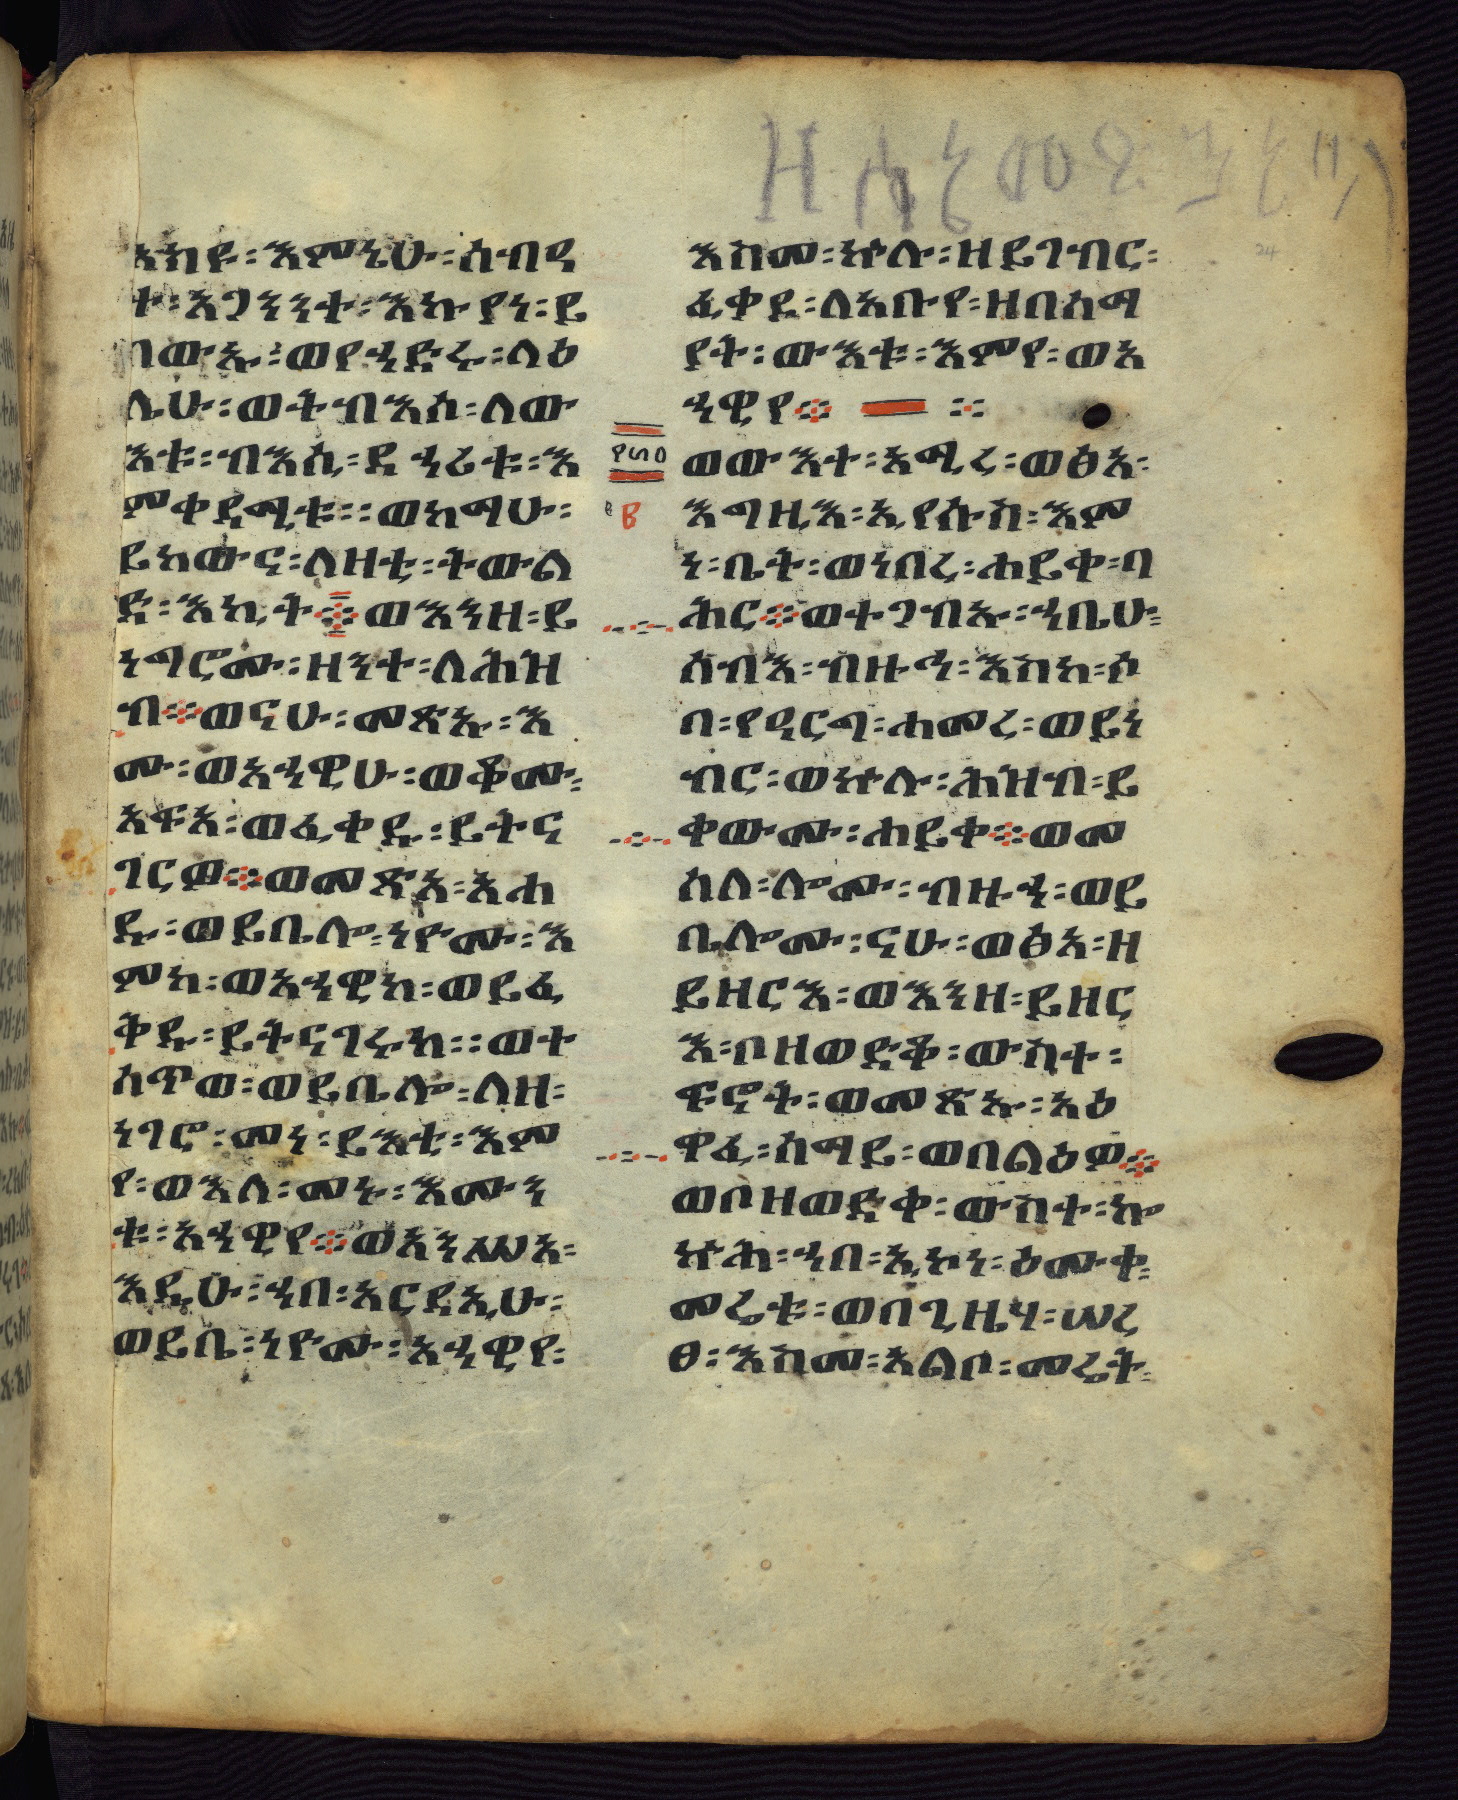 እኩየ፡እምኔሁ፡ሰብዓ
ተ፡አጋንንተ፡እኩየነ፡ይ
በውኡ፡ወየኃድሩ፡ላዕ
ሌሁ፡ወትብእስ፡ለው
እቱ፡ብእሲ፡ደኃሪቱ፡እ
ምቀዳሚቱ፡፡ወከማሁ፡
ይከውና፡ለዛቲ፡ትውል
ድ፡እኪት፨ወእንዘ፡ይ
ነግሮሙ፡ዘንተ፡ለሕዝ
ብ፨ወናሁ፡መጽኡ፡እ
ሙ፡ወአኃዊሁ፡ወቆሙ፡
አፍአ፡ወፈቀዱ፡ይትና
ገርዎ፨ወመጽአ፡አሐ
ዱ፡ወይቤሎ፡ነዮሙ፡እ
ምከ፡ወአኃዊከ፡ወይፈ
ቅዱ፡ይትናገሩከ፡፡ወተ
ሰጥወ፡ወይቤሎ፡ለዘ፡
ነገሮ፡መነ፡ይእቲ፡እም
የ፡ወእለ፡መኑ፡እሙን
ቱ፡አኃዊየ፨ወአንሥአ፡
እዴሁ፡ኀበ፡አርዳኢሁ፡
ወይቤ፡ነዮሙ፡አኃዊየ፡
እስመ፡ኵሉ፡ዘይገብር፡
ፈቀደ፡ለአቡየ፡ዘበሰማ
ያት፡ውእቱ፡እምየ፡ወእ
ኃዊየ፨
ወውእተ፡አሚረ፡ወፅአ፡
እግዚእ፡ኢየሱስ፡እም
ነ፡ቤት፡ወነበረ፡ሐይቀ፡ባ
ሕር፨ወተጋብኡ፡ኀቤሁ፡
ሰብእ፡ብዙኅ፡እስከ፡ሶ
በ፡የዓርግ፡ሐመረ፡ወይነ
ብር፡ወኵሉ፡ሕዝብ፡ይ
ቀውሙ፡ሐይቀ፨ወመ
ሰለ፡ሎሙ፡ብዙኀ፡ወይ
ቤሎሙ፡ናሁ፡ወፅአ፡ዘ
ይዘርእ፡ወእንዘ፡ይዘር
እ፡ቦዘወድቀ፡ውስተ፡
ፍኖት፡ወመጽኡ፡አዕ
ዋፈ፡ሰማይ፡ወበልዕዎ፨
ወቦዘወድቀ፡ውስተ፡ኰ
ኵሕ፡ኀበ፡ኢኮነ፡ዕሙቀ፡
መሬቱ፡ወበጊዜሃ፡ሠረ
ፀ፡እስመ፡አልቦ፡መሬት፡